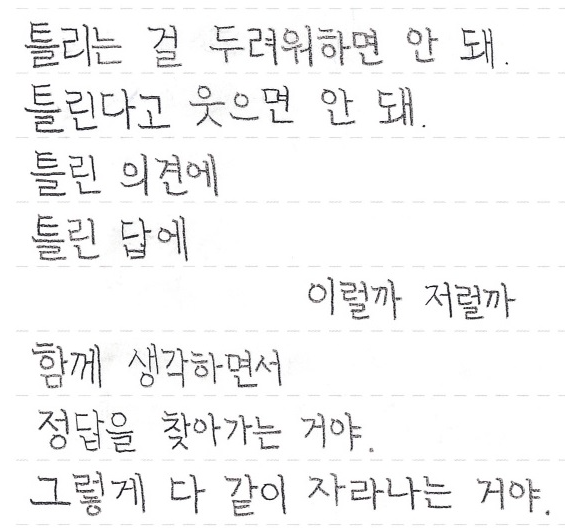 틀리는 걸 두려워하면 안 돼.
틀린다고 웃으면 안 돼.
틀린 의견에
틀린 답에
이럴까 저럴까
함께 생각하면서
정답을 찾아가는 거야.
그렇게 다 같이 자라나는 거야.